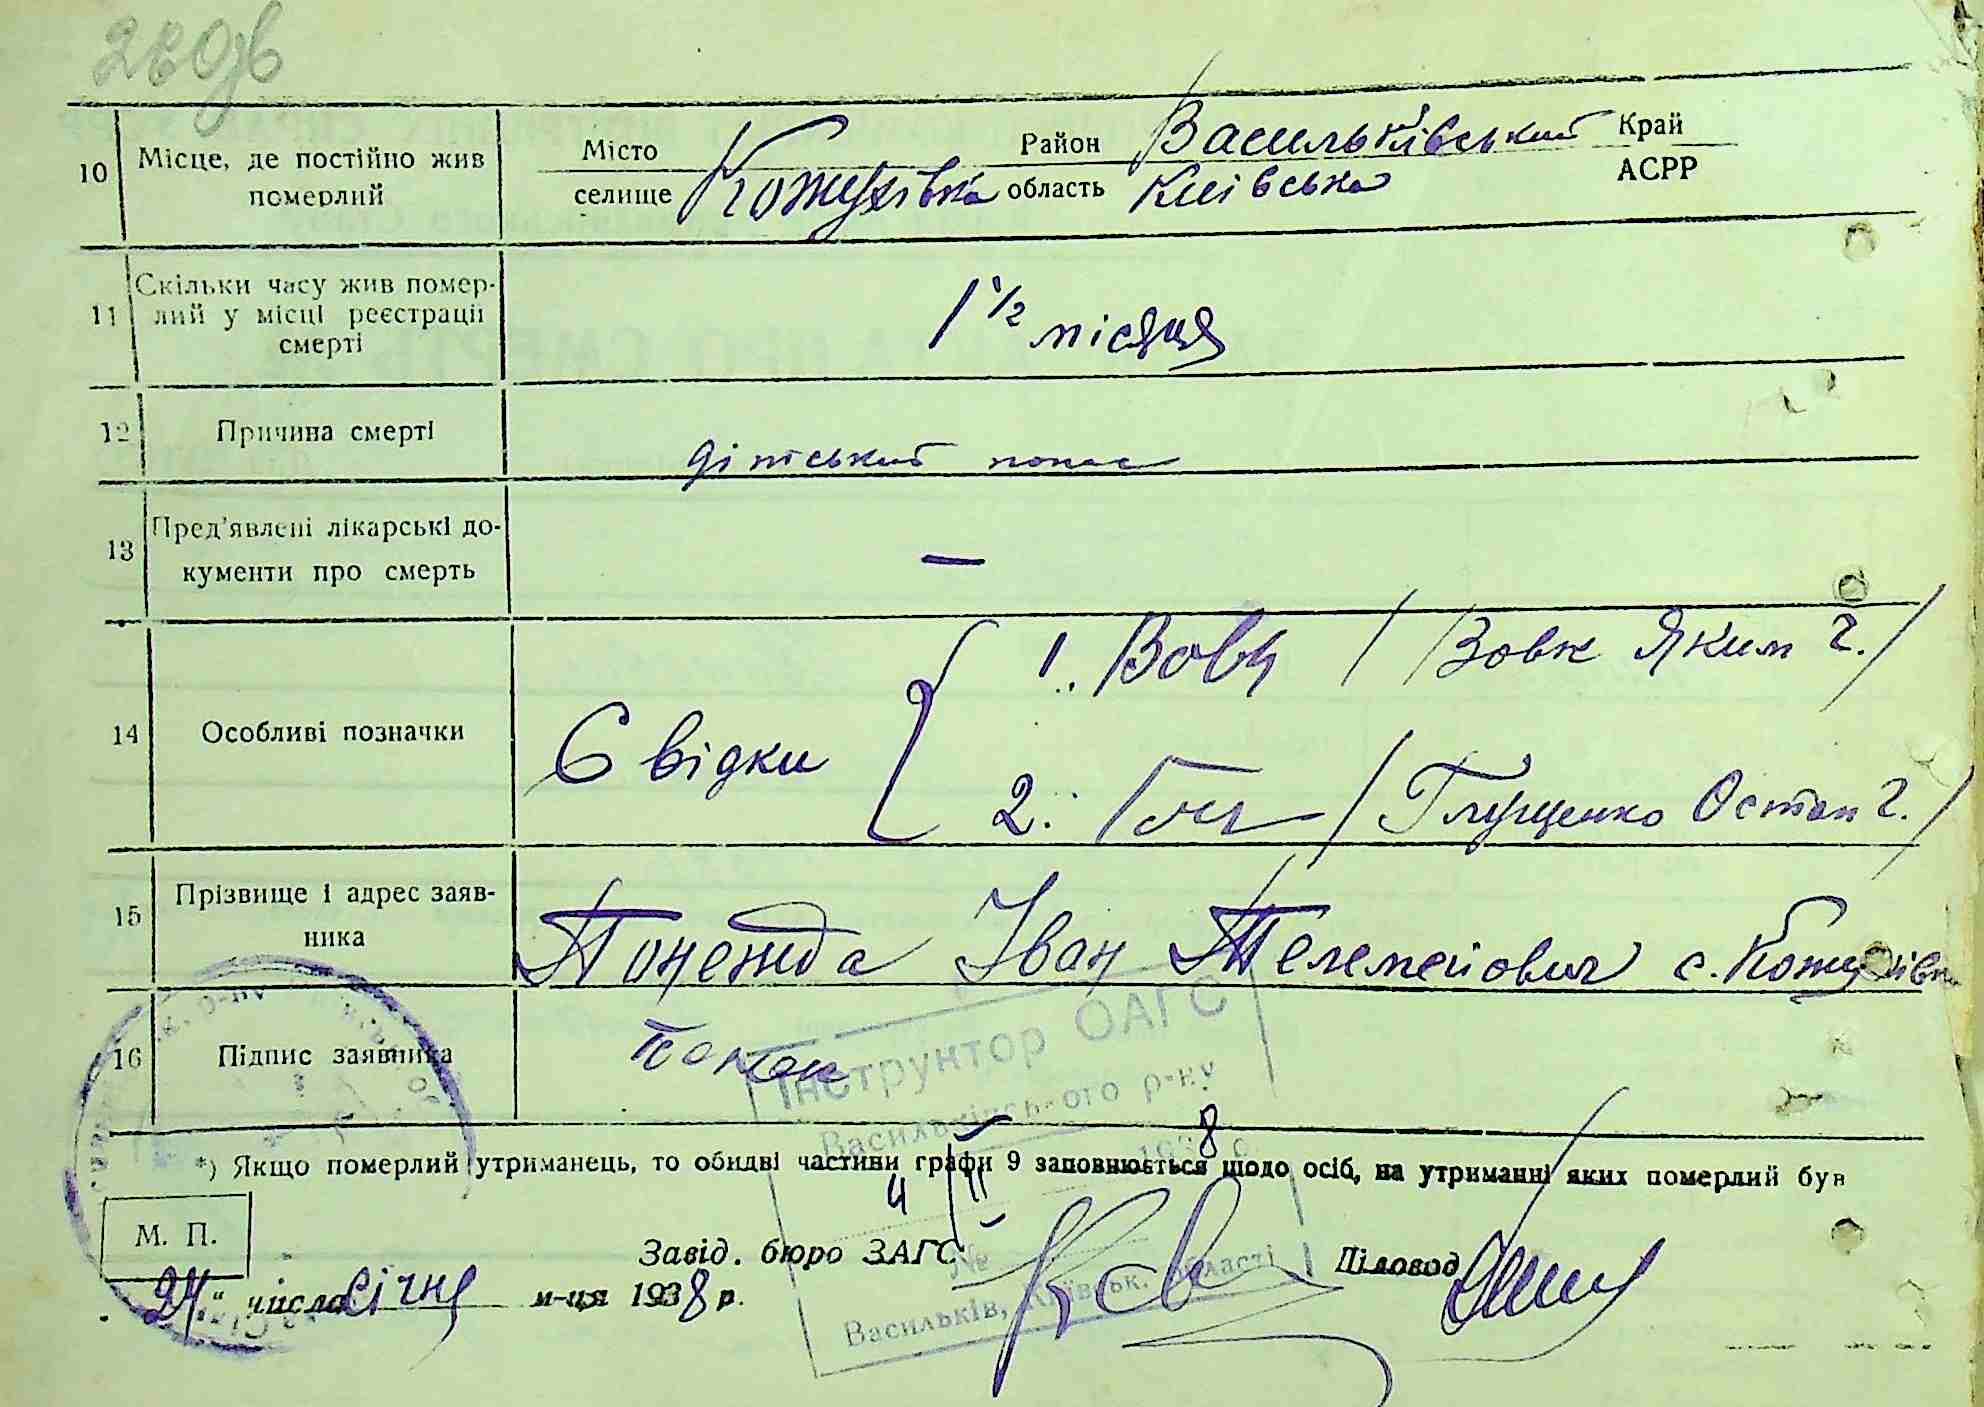 280зв
10 Місце, де постійно жив померлий
Місто селище Кожухівка Район область Васильківський Київська Край АСРР
11 Скільки часу жив помер-
лий у місці реєстрації
смерті
1 1/2 місяця
12 Причина смерті
дітський понос
13 Пред'явлені лікарські до-
кументи про смерть
—
14 Особливі позначки
Свідки
1. Вовк / /Вовк Яким Г./
2. /Глущенко Остап Г./
15 Прізвище і адрес заяв-
ника
Понежда Іван Телемейович с. Кожухівка
16 Підпис заявника
Інструктор ОАГС
Васильківського р-ну
1938 р.
*) Якщо померлий утриманець, то обидві частини графи 9 заповнюється щодо осіб, на утриманні яких померлий був
М. П.
Завід. бюро ЗАГС
Діловод
№
Васильків, Київськ. області
24 " числа січня м-ця 1938 р.